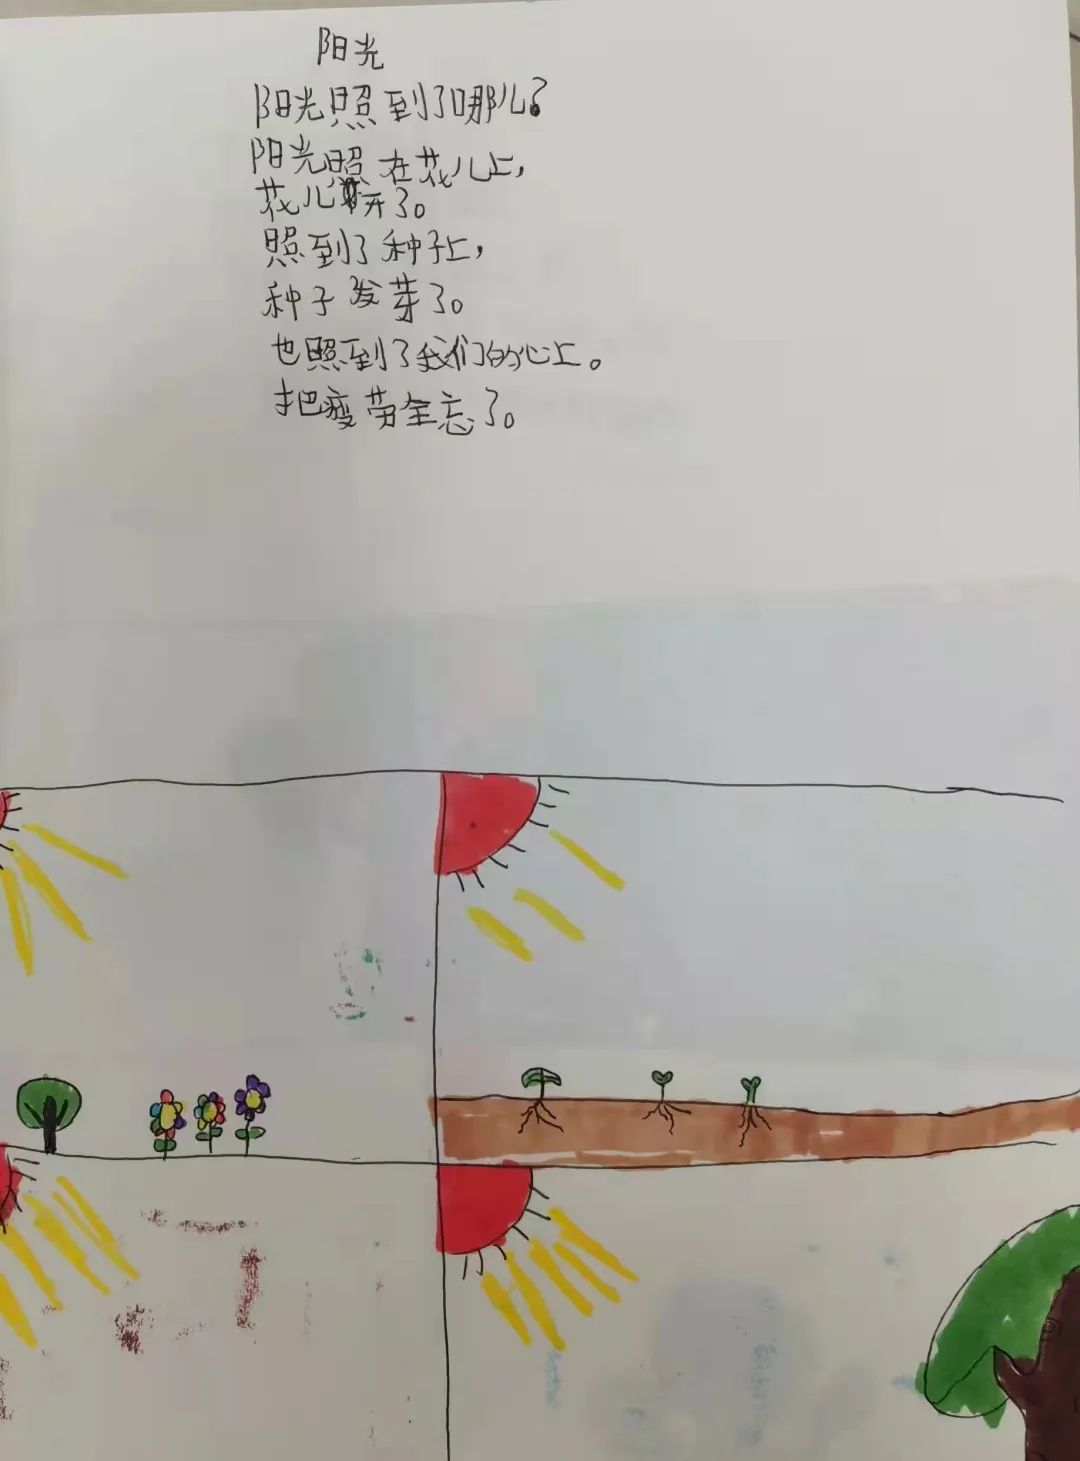 阳光
阳光照到了哪儿？
阳光照在花儿上，
花儿开了。
照到了种子上，
种子发芽了。
也照到了我们的心上。
把疲劳全忘了。